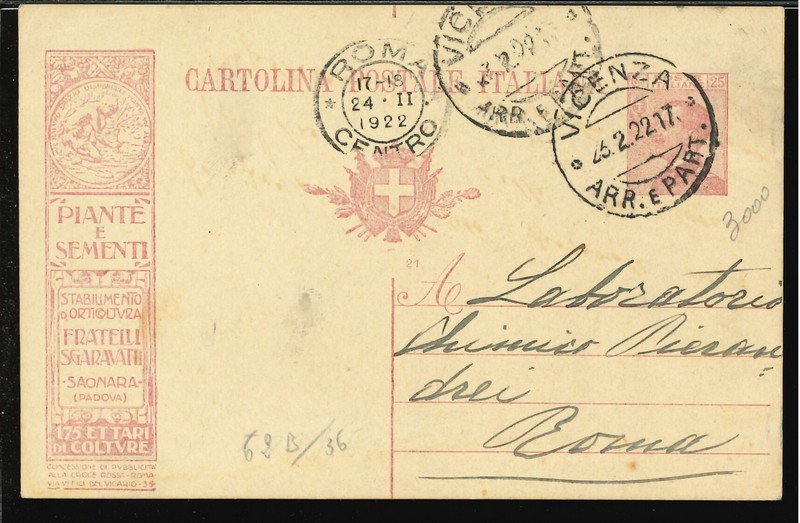 CARTOLINA POSTALE ITALIANA
ROMA
17-18
24 · II
1922
CENTRO
VICENZA
ARR. E PART.
VICENZA
25.2.22 17.
ARR. E PART.
25
3000
PIANTE
E
SEMENTI
STABILIMENTO
D'ORTICOLTURA
FRATELLI
SGARAVATTI
-SAONARA-
(PADOVA)
175 ETTARI
DI COLTVRE
CONCESSIONE DI PUBBLICITÀ
ALLA CROCE ROSSA-ROMA-
VIA UFFICI DEL VICARIO-35
21
A Laboratorio
Chimico Pieran
drei
Roma
68 B/36